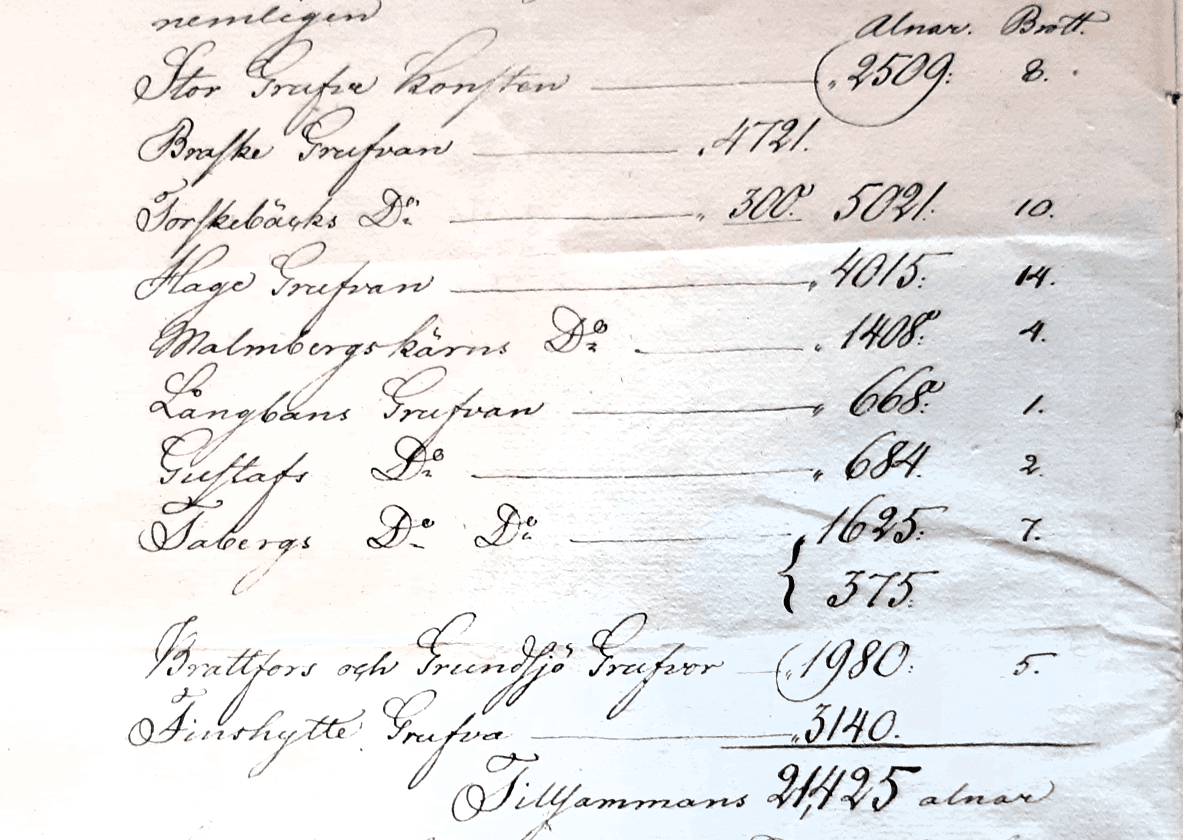 nemligen
Alnar. Brott.
Stor Grufve Konsten „2509: 8.
Braske Grufvan „4721.
Torskebäcks Do „300: 5021. 10.
Hage Grufvan „4015: 14.
Malmbergskärns Do „1408: 4.
Långbans Grufvan „668: 1.
Gustafs Do „684. 2.
Tabergs Do Do „1625: 7.
{ 375:
Brattfors och Grundsjö Grufvor „1980: 5.
Finshytte Grufva „3140.
Tillsammans 21,425 alnar